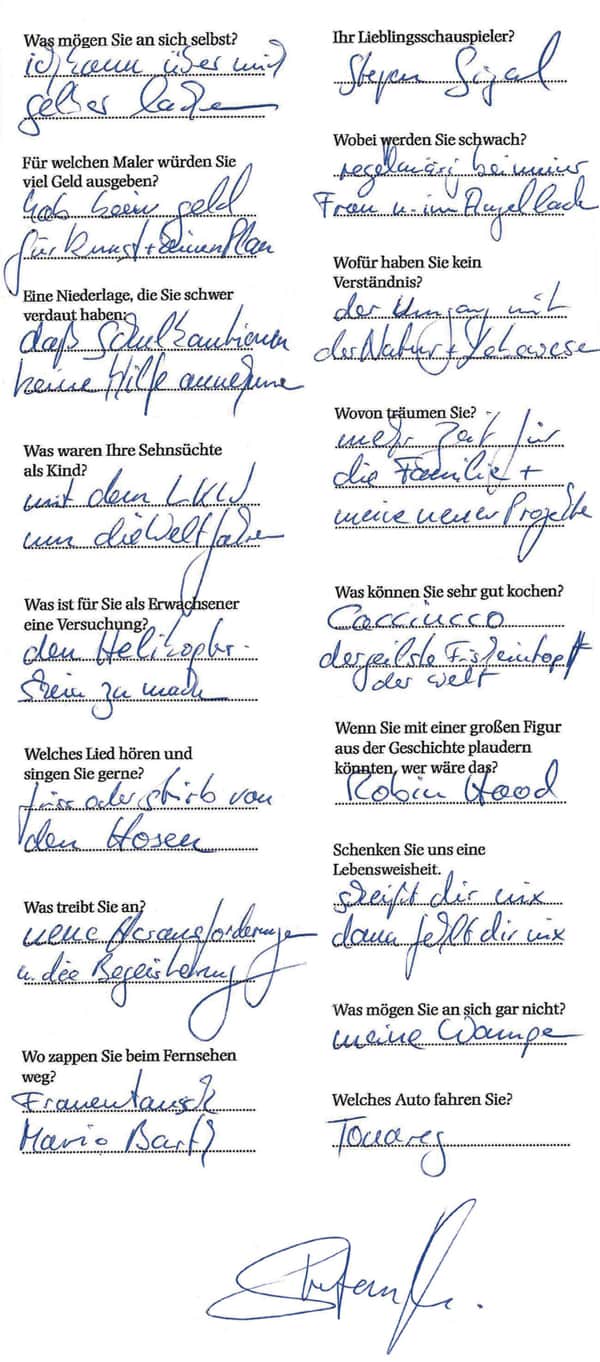 Was mögen Sie an sich selbst?
ich kann über mich
selber lachen
Für welchen Maler würden Sie
viel Geld ausgeben?
Hab kein geld
für Kunst + keinen Plan
Eine Niederlage, die Sie schwer
verdaut haben:
daß Schulkantienen
keine Hilfe annehmen
Was waren Ihre Sehnsüchte
als Kind?
mit dem LKW
um die Welt fahren
Was ist für Sie als Erwachsener
eine Versuchung?
den Helikopter-
schein zu machen
Welches Lied hören und
singen Sie gerne?
friss oder stirb von
den Hosen
Was treibt Sie an?
neue Herausforderungen
u. die Begeisterung
Wo zappen Sie beim Fernsehen
weg?
Frauentausch
Mario Barth
Ihr Lieblingsschauspieler?
Steven Sigal
Wobei werden Sie schwach?
regelmäsig bei meiner
Frau u. im Angelladen
Wofür haben Sie kein
Verständnis?
der Umgang mit
der Natur + Lebewese
Wovon träumen Sie?
mehr Zeit für
die Familie +
meine neuen Projekte
Was können Sie sehr gut kochen?
Cacciucco
der geilste Fischeintopf
der Welt
Wenn Sie mit einer großen Figur
aus der Geschichte plaudern
könnten, wer wäre das?
Robin Hood
Schenken Sie uns eine
Lebensweisheit.
scheißt dir nix
dann fehlt dir nix
Was mögen Sie an sich gar nicht?
meine Wampe
Welches Auto fahren Sie?
Touareg
Stefan